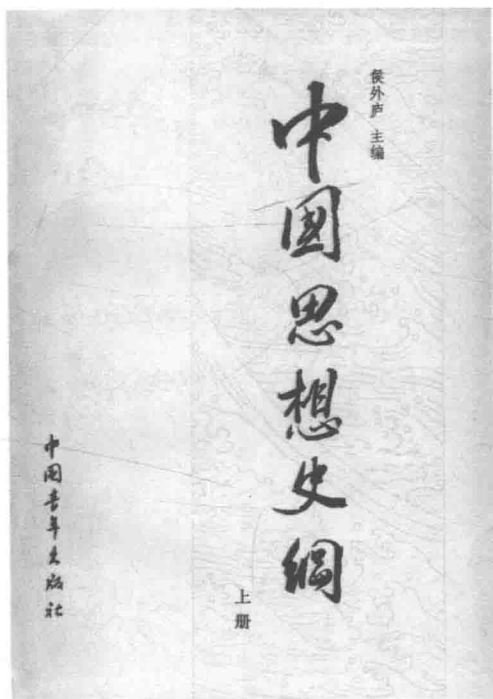 侯外庐 主编
中國思想史綱
上册
中国青年出版社